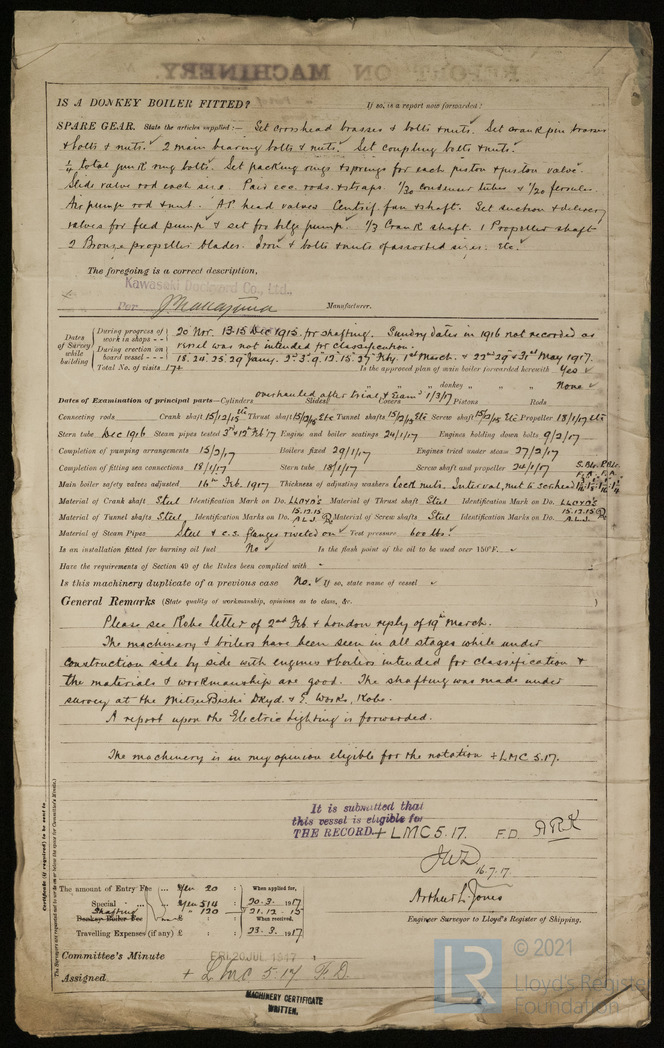 REPORT ON MACHINERY.
IS A DONKEY BOILER FITTED? If so, is a report now forwarded?
SPARE GEAR. State the articles supplied:— Set crosshead brasses & bolts & nuts. Set crank pin brasses
& bolts & nuts. 2 main bearing bolts & nuts. Set coupling bolts & nuts.
total junk ring bolts. Set packing rings & springs for each piston & piston valve.
Slide valve rod each size. Pair ecc. rods & straps. 1/20 condenser tubes & 1/20 ferrules.
Air pump rod & nut. A.P. head valves Centrif. fan & shaft. Set suction & delivery
valves for feed pump & set for bilge pump. 1/3 Crank shaft. 1 Propeller shaft
2 Bronze propeller blades. Iron & bolts & nuts of assorted sizes. Etc.
The foregoing is a correct description,
Kawasaki Dockyard Co., Ltd.,
For Manufacturer.
Dates of Survey while building
During progress of work in shops - - 20 Nov. 13-15 Dec 1915 for shafting. Sundry dates in 1916 not recorded as
vessel was not intended for classification.
During erection on board vessel - - - 18. 24. 25. 29 Jany. 2nd 3rd 9. 12. 15. 27 Feby. 1st March. & 22nd 29 & 31st May 1917.
Total No. of visits 17+ Is the approved plan of main boiler forwarded herewith Yes
" " " donkey " " " None
overhauled after trial & exam'd 1/3/17
Dates of Examination of principal parts—Cylinders Slides Covers Pistons Rods
Connecting rods Crank shaft 15/12/15 Etc Thrust shaft 15/12/15 Etc Tunnel shafts 15/12/15 Etc Screw shaft 15/12/15 Etc Propeller 18/1/17 Etc
Stern tube Dec 1916 Steam pipes tested 3rd & 12th Feb '17 Engine and boiler seatings 24/1/17 Engines holding down bolts 9/2/17
Completion of pumping arrangements 15/2/17 Boilers fixed 29/1/17 Engines tried under steam 27/2/17
Completion of fitting sea connections 18/1/17 Stern tube 18/1/17 Screw shaft and propeller 24/1/17
S.Blr. P.Blr.
F. A. F. A.
Main boiler safety valves adjusted 16th Feb. 1917 Thickness of adjusting washers Lock nuts. Interval, nut to seathead
Material of Crank shaft Steel Identification Mark on Do. LLOYD'S Material of Thrust shaft Steel Identification Mark on Do. LLOYD'S
Material of Tunnel shafts Steel Identification Marks on Do. 15.12.15 A.L.J. Material of Screw shafts Steel Identification Marks on Do. 15.12.15 A.L.J.
Material of Steam Pipes Steel & C.S. flanges riveted on Test pressure 600 lbs.
Is an installation fitted for burning oil fuel No Is the flash point of the oil to be used over 150°F.
Have the requirements of Section 49 of the Rules been complied with
Is this machinery duplicate of a previous case No. If so, state name of vessel
General Remarks (State quality of workmanship, opinions as to class, &c. )
Please see Kobe letter of 2nd Feb & London reply of 19th March.
The machinery & boilers have been seen in all stages while under
construction side by side with engines & boilers intended for classification &
the materials & workmanship are good. The shafting was made under
survey at the Mitsu Bishi Dkyd. & E. Works, Kobe.
A report upon the Electric Lighting is forwarded.
The machinery is in my opinion eligible for the notation + LMC 5.17.
It is submitted that
this vessel is eligible for
THE RECORD. + LMC 5. 17. F.D.
16.7.17
Certificate (if required) to be sent to
The Surveyors are requested not to write on or below the space for Committee's Minute.
The amount of Entry Fee ... Yen 20 : : When applied for,
Special ... Yen 514 : : 20.3.1917
Shafting " 120 : 21.12.15
Donkey Boiler Fee ... £ : : When received,
Travelling Expenses (if any) £ : : 23.3.1917
Arthur L. Jones
Engineer Surveyor to Lloyd's Register of Shipping.
Committee's Minute FRI. 20 JUL. 1917
Assigned + LMC 5.17 F.D.
MACHINERY CERTIFICATE
WRITTEN.
LR
© 2021
Lloyd's Register
Foundation